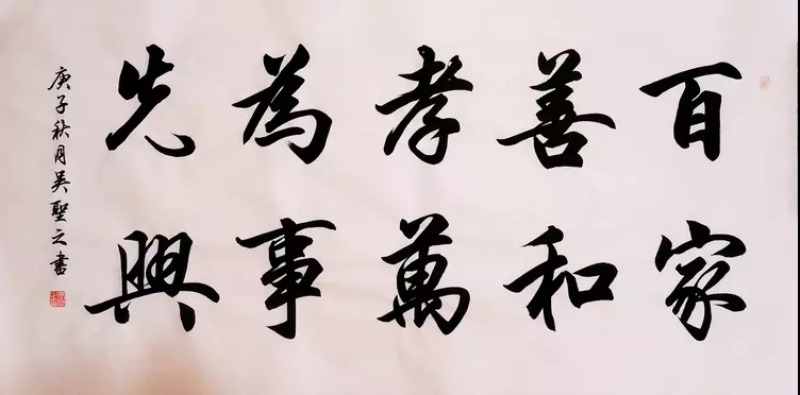 百善孝為先
家和萬事興
庚子秋月吴聖之書